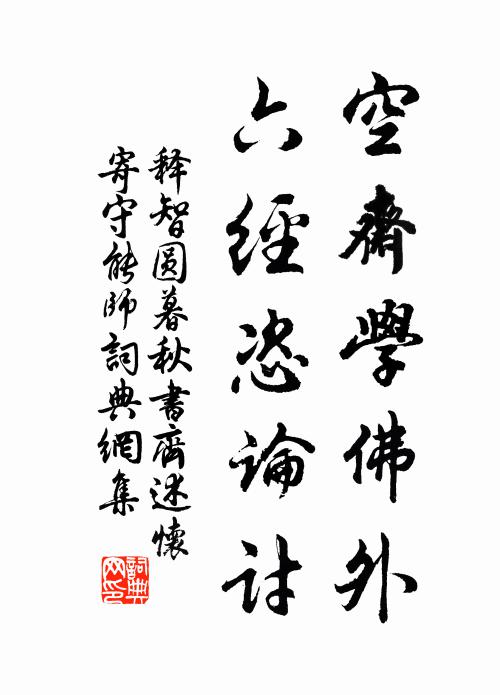 空齋學佛外
六經恣論討
释智圆暮秋書齋述懷
寄守能師詞典網集
詞典
网印